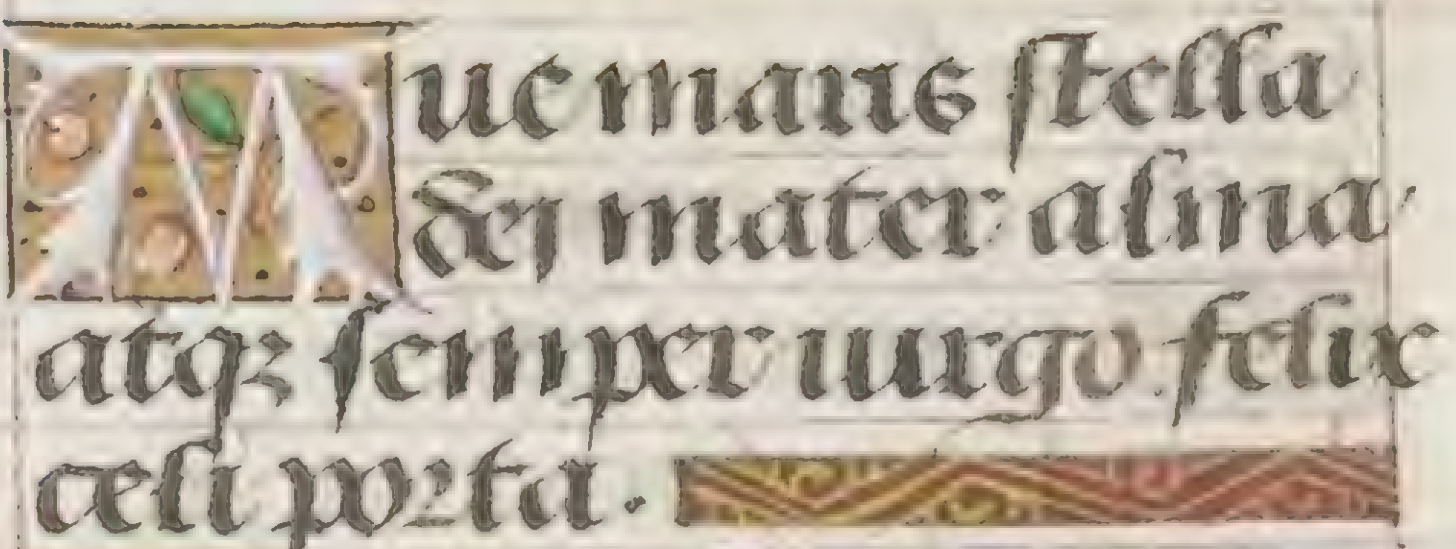 Aue maris stella
Dej mater alma
atqꝫ semper uirgo felix
celi porta.